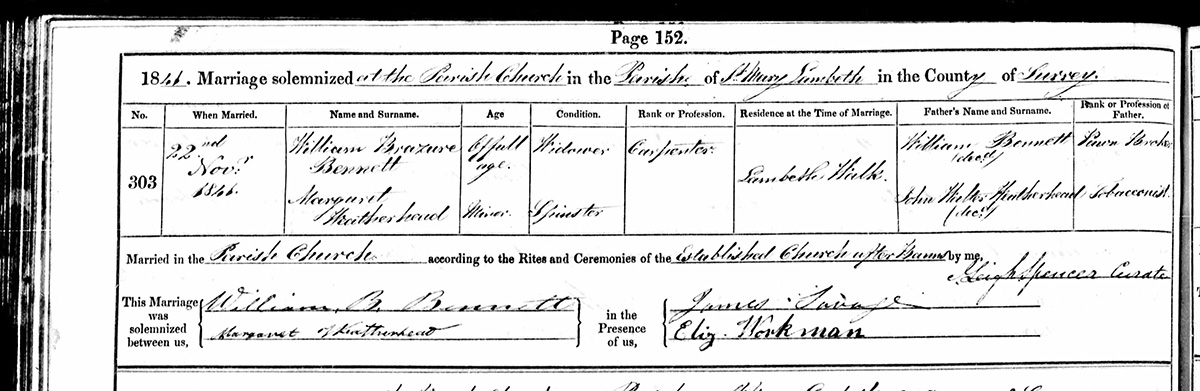 Page 152.
1846. Marriage solemnized at the Parish Church in the Parish of St Mary Lambeth in the County of Surrey.
No. When Married. Name and Surname. Age Condition. Rank or Profession. Residence at the Time of Marriage. Father's Name and Surname. Rank or Profession of Father.
303
22nd
Novr
1846.
William Brazure
Bennett
Margaret
Weatherhead
Of full
age.
Minor.
Widower
Spinster
Carpenter
Lambeth Walk.
William Bennett
(decd)
John Walter Weatherhead
(decd)
Pawn Broker
Tobacconist.
Married in the Parish Church according to the Rites and Ceremonies of the Established Church after Banns by me,
Leigh Spencer Curate
This Marriage was solemnized between us,
William B. Bennett
Margaret Weatherhead
in the Presence of us,
James Savage
Eliz Workman